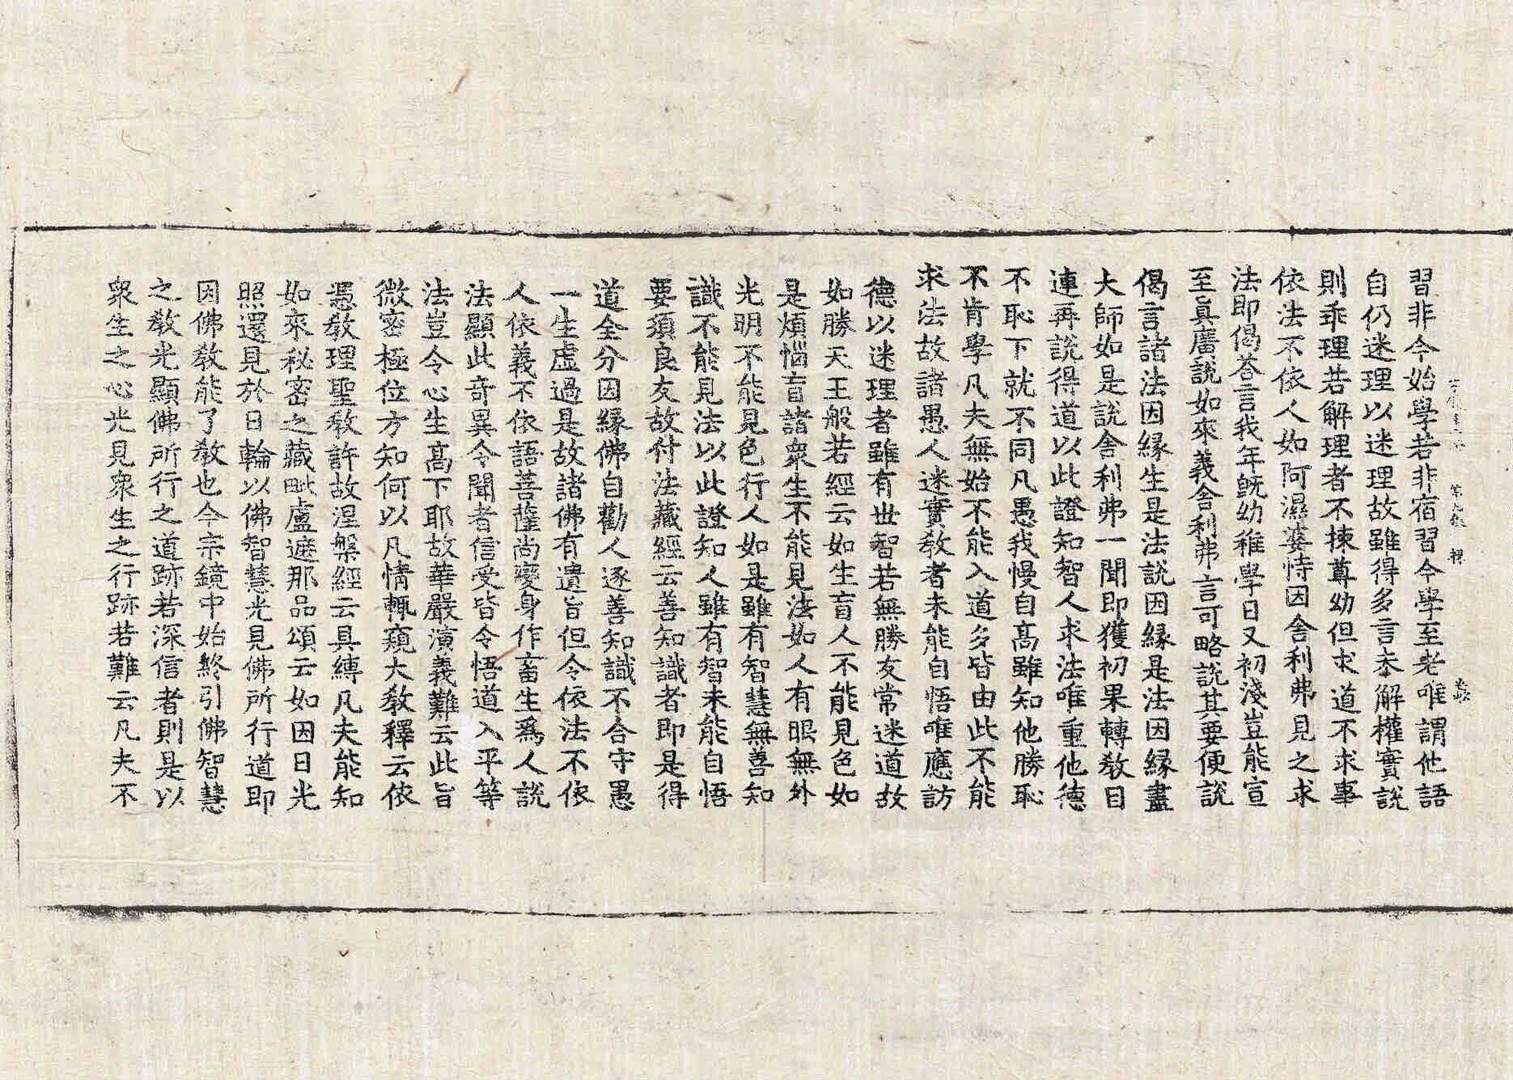 習非今始學若非宿習今學至老唯謂他語
自仍迷理以迷理故雖得多言未解權實說
則乖理若解理者不揀尊幼但求道不求事
依法不依人如阿濕婆恃因舍利弗見之求
法即偈荅言我年旣幼稚學日又初淺豈能宣
至眞廣說如來義舍利弗言可略說其要便說
偈言諸法因縁生是法說因縁是法因縁盡
大師如是說舍利弗一聞即獲初果轉教目
連再說得道以此證知智人求法唯重他德
不恥下就不同凡愚我慢自髙雖知他勝恥
不肯學凡夫無始不能入道多皆由此不能
求法故諸愚人迷實教者未能自悟唯應訪
德以迷理者雖有世智若無勝友常迷道故
如勝天王般若經云如生盲人不能見色如
是煩惱盲諸衆生不能見法如人有眼無外
光明不能見色行人如是雖有智慧無善知
識不能見法以此證知人雖有智未能自悟
要須良友故付法藏經云善知識者即是得
道全分因縁佛自勸人逐善知識不合守愚
一生虛過是故諸佛有遺旨但令依法不依
人依義不依語菩薩尚變身作畜生爲人說
法顯此奇異令聞者信受皆令悟道入平等
法豈令心生髙下耶故華嚴演義難云此旨
微密極位方知何以凡情輒窺大教釋云依
憑教理聖教許故涅槃經云具縛凡夫能知
如來秘密之藏毗盧遮那品頌云如因日光
照還見於日輪以佛智慧光見佛所行道即
因佛教能了教也今宗鏡中始終引佛智慧
之教光顯佛所行之道跡若深信者則是以
衆生之心光見衆生之行跡若難云凡夫不